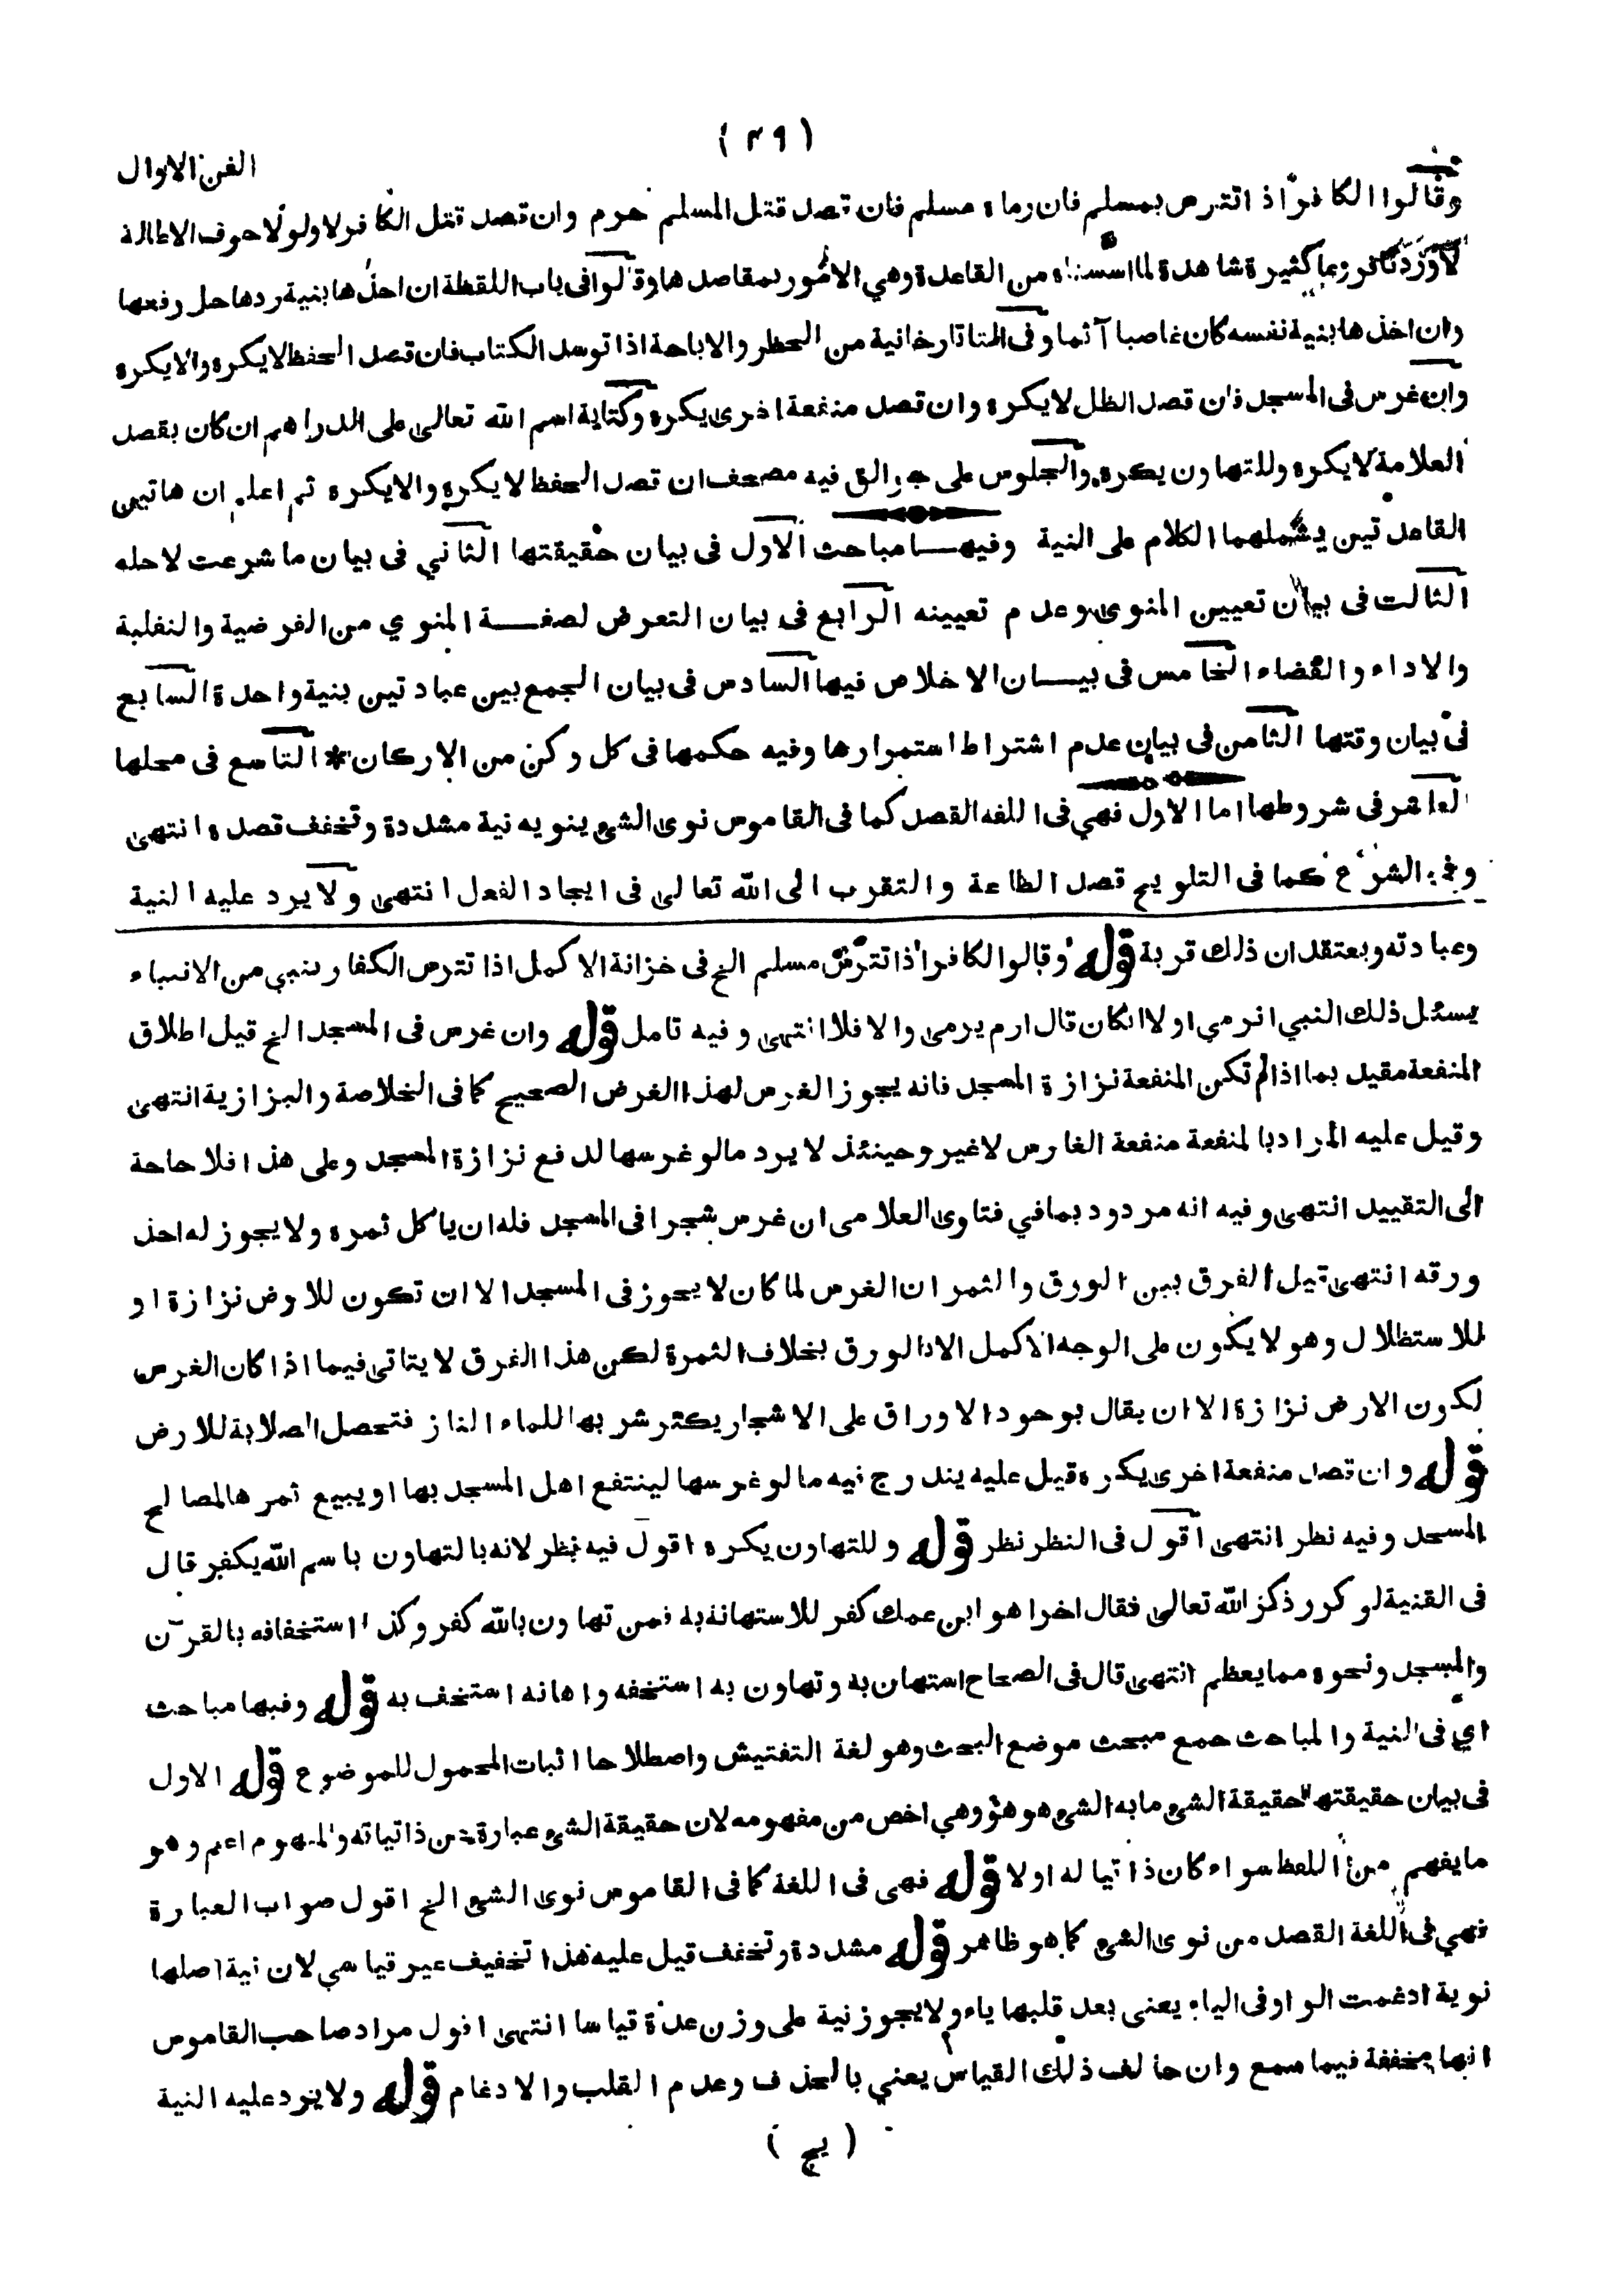 ( ٤٩ )
الفن الاوال
وقالوا الكافر اذا تترس بمسلم فان رماه مسلم فان قصد قتل المسلم حرم وان قصد قتل الكافر لا ولولا خوف الاطالة
لاوردنا فروعا كثيرة شاهدة لما اسسناه من القاعدة وهي الامور بمقاصدها وقالوا فى باب اللقطة ان اخذها بنية ردها حل رفعها
وان اخذها بنية نفسه كان غاصبا آثما وفى التاتارخانية من الحظر والاباحة اذا توسد الكتاب فان قصد الحفظ لا يكره والا يكره
وان غرس فى المسجد فان قصد الظل لا يكره وان قصد منفعة اخرى يكره وكتابة اسم الله تعالى على الدراهم ان كان بقصد
العلامة لا يكره وللتهاون يكره والجلوس على جوالق فيه مصحف ان قصد الحفظ لا يكره والا يكره ثم اعلم ان هاتين
القاعدتين يشملهما الكلام على النية وفيها مباحث الاول فى بيان حقيقتها الثاني فى بيان ما شرعت لاجله
الثالث فى بيان تعيين المنوى وعدم تعيينه الرابع فى بيان التعرض لصفة المنوي من الفرضية والنفلية
والاداء والقضاء الخامس فى بيان الاخلاص فيها السادس فى بيان الجمع بين عبادتين بنية واحدة السابع
فى بيان وقتها الثامن فى بيان عدم اشتراط استمرارها وفيه حكمها فى كل ركن من الاركان * التاسع فى محلها
العاشر فى شروطها اما الاول فهي فى اللغه القصد كما فى القاموس نوى الشئ ينويه نية مشددة وتخفف قصده انتهى
وفى الشرع كما فى التلويح قصد الطاعة والتقرب الى الله تعالى فى ايجاد الفعل انتهى ولا يرد عليه النية
وعبادته وبعتقد ان ذلك قربة قوله وقالوا الكافر اذا تترس مسلم الخ فى خزانة الاكمل اذا تترس الكفار بنبي من الانبياء
يسئل ذلك النبي انرمي اولا ان كان قال ارم يرمى والا فلا انتهى وفيه تامل قوله وان غرس فى المسجد الخ قيل اطلاق
المنفعة مقيد بما اذا لم تكن المنفعة نزازة المسجد فانه يجوز الغرس لهذا الغرض الصحيح كما فى الخلاصة والبزازية انتهى
وقيل عليه المراد بالمنفعة منفعة الغارس لا غير وحينئذ لا يرد ما لو غرسها لدفع نزازة المسجد وعلى هذا فلا حاجة
الى التقييد انتهى وفيه انه مردود بما في فتاوى العلامى ان غرس شجرا فى المسجد فله ان ياكل ثمره ولا يجوز له اخذ
ورقه انتهى قيل الفرق بين الورق والثمر ان الغرس لما كان لا يجوز فى المسجد الا ان تكون للارض نزازة او
للاستظلال وهو لا يكون على الوجه الاكمل الا بالورق بخلاف الثمرة لكن هذا الفرق لا يتاتى فيما اذا كان الغرس
لكون الارض نزازة الا ان يقال بوجود الاوراق على الاشجار يكثر شربها للماء الناز فتحصل الصلابة للارض
قوله وان قصد منفعة اخرى يكره قيل عليه يندرج فيه ما لو غرسها لينتفع اهل المسجد بها او يبيع ثمرها لمصالح
المسجد وفيه نظر انتهى اقول فى النظر نظر قوله وللتهاون يكره اقول فيه نظر لانه بالتهاون باسم الله يكفر قال
فى القنية لو كرر ذكر الله تعالى فقال اخرا هو ابن عمك كفر للاستهانة به فمن تهاون بالله كفر وكذا استخفافه بالقرآن
والمسجد ونحوه مما يعظم انتهى قال فى الصحاح استهان به وتهاون به استخفه واهانه استخف به قوله وفيها مباحث
اي فى النية والمباحث جمع مبحث موضع البحث وهو لغة التفتيش واصطلاحا اثبات المحمول للموضوع قوله الاول
فى بيان حقيقتها حقيقة الشئ ما به الشئ هو هو وهي اخص من مفهومه لان حقيقة الشئ عبارة عن ذاتياته والمفهوم اعم وهو
ما يفهم من اللفظ سواء كان ذاتيا له اولا قوله فهى فى اللغة كما فى القاموس نوى الشئ الخ اقول صواب العبارة
فهي فى اللغة القصد من نوى الشئ كما هو ظاهر قوله مشددة وتخفف قيل عليه هذا تخفيف غير قياسي لان نية اصلها
نوية ادغمت الواو فى الياء يعنى بعد قلبها ياء ولا يجوز نية على وزن عدة قياسا انتهى اقول مراد صاحب القاموس
انها مخففة فيما سمع وان خالف ذلك القياس يعني بالحذف وعدم القلب والادغام قوله ولا يرد عليه النية
( يج )